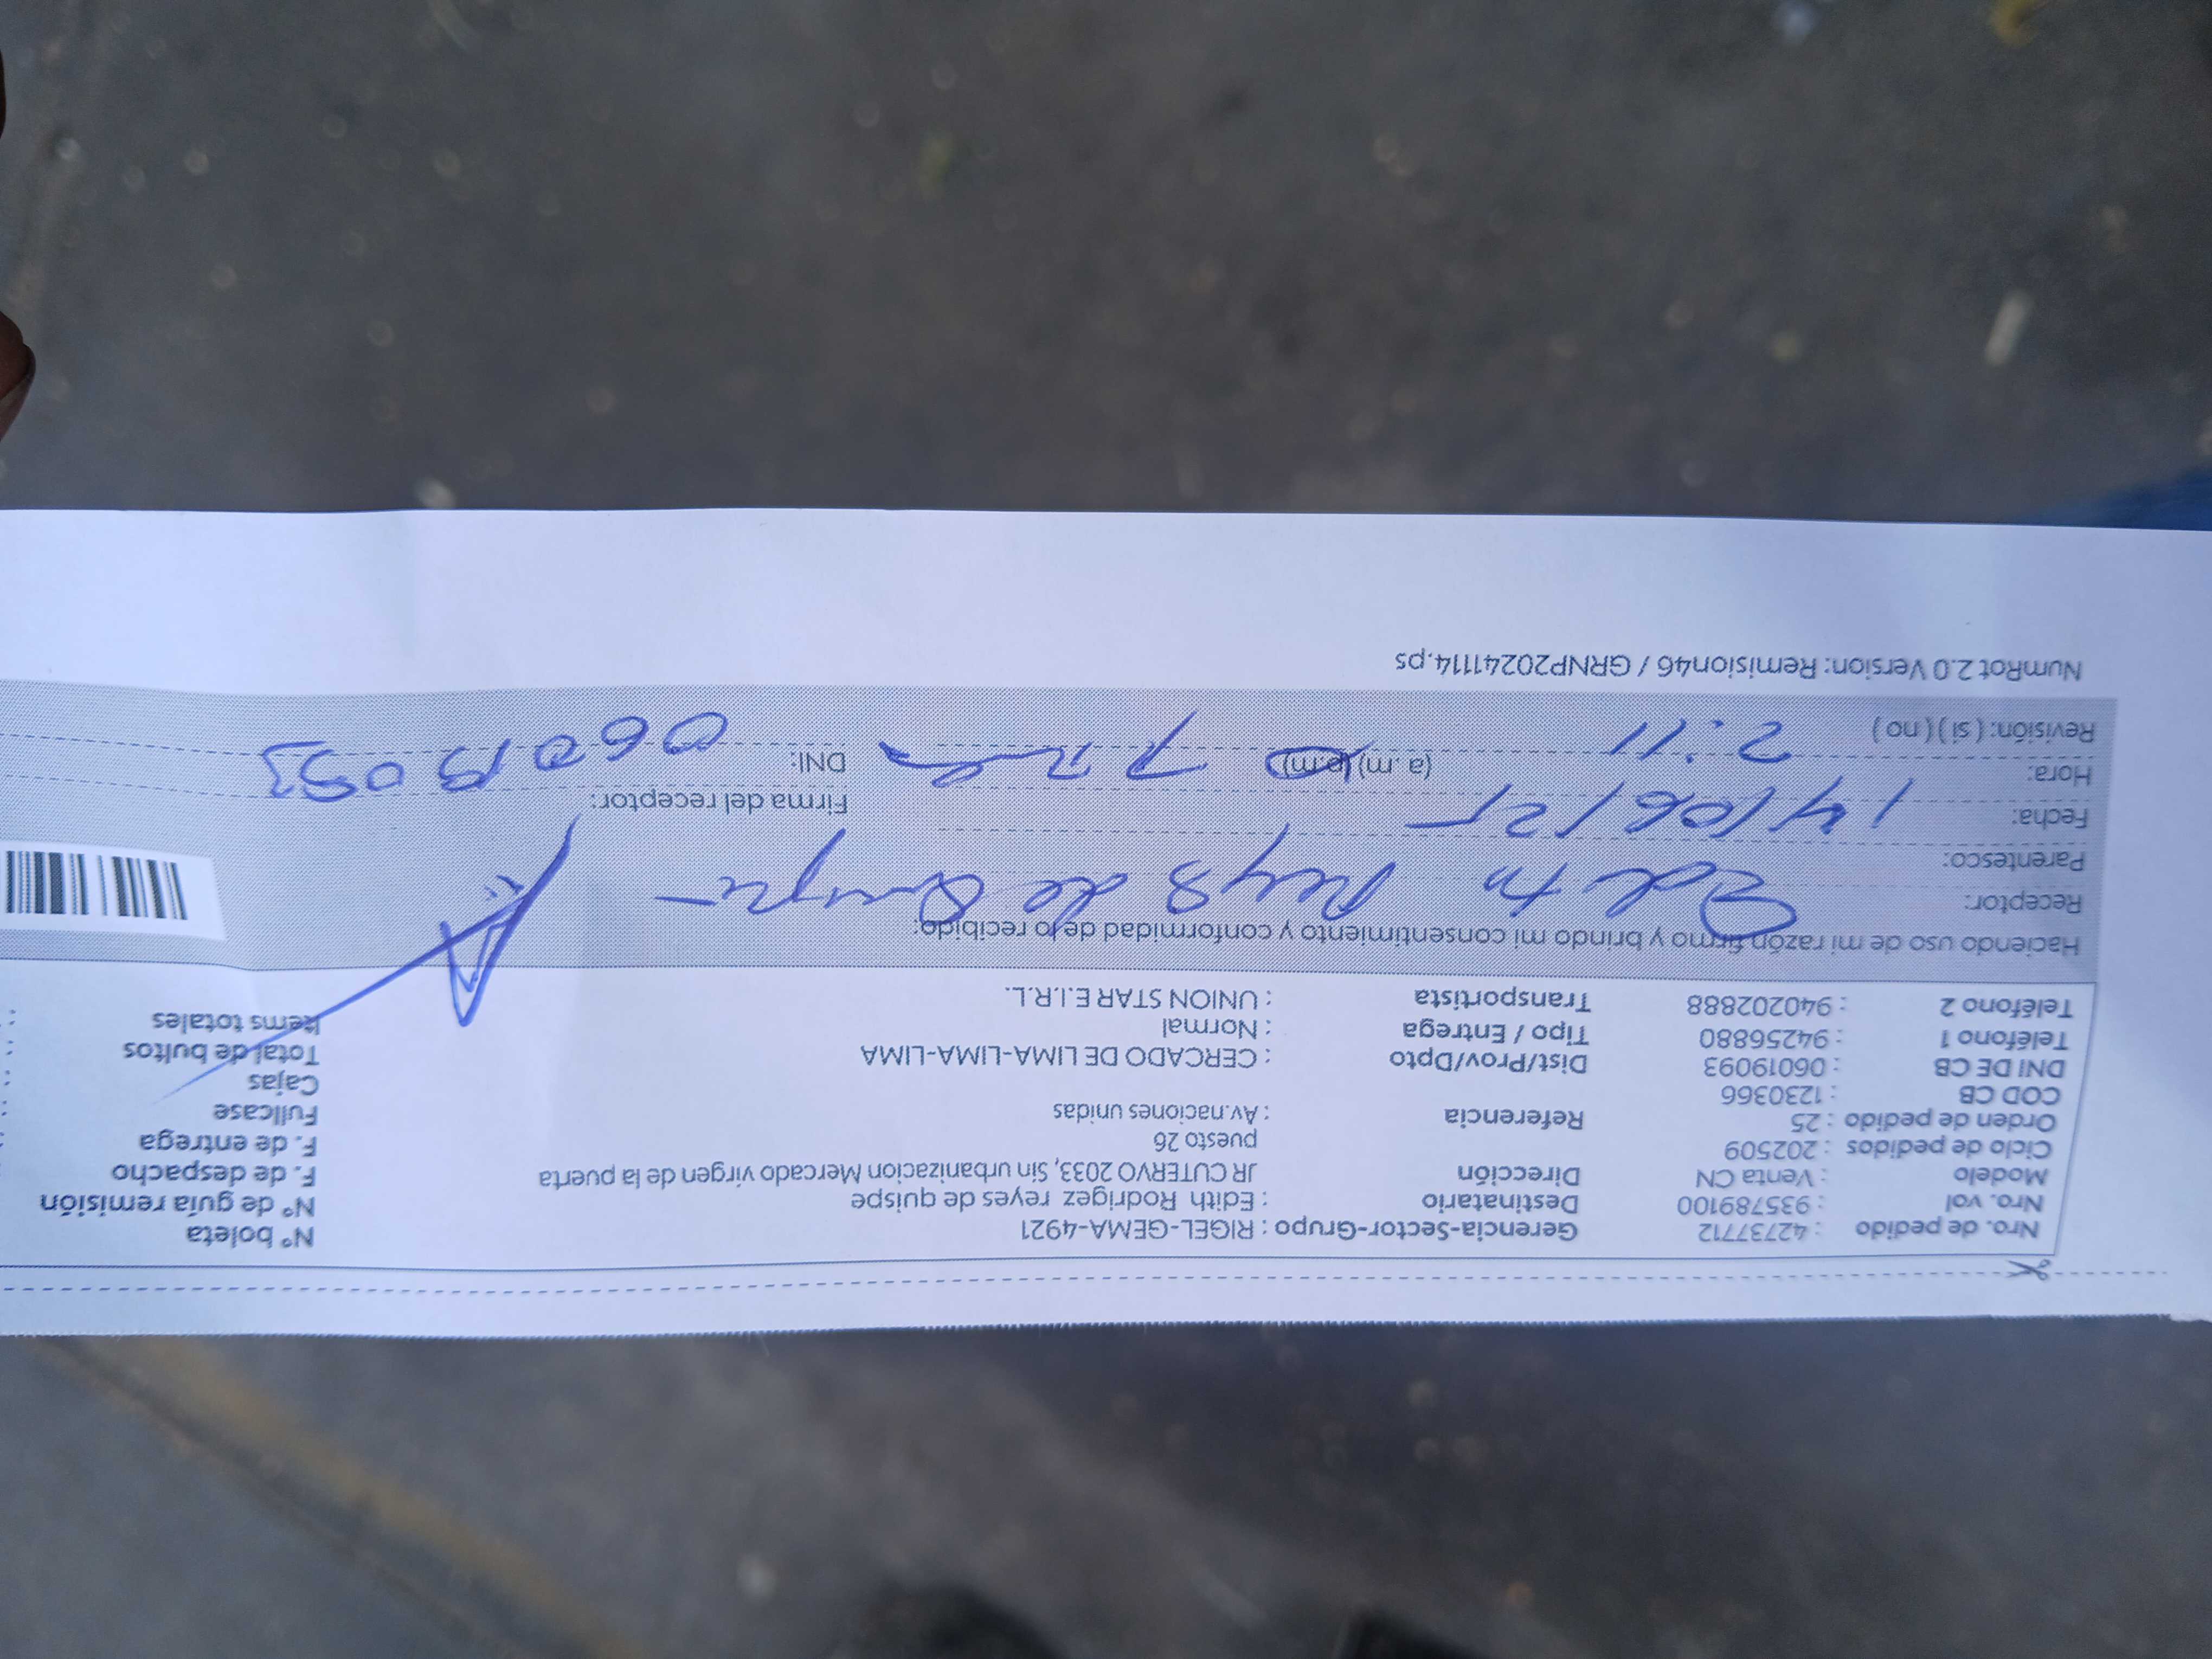 Nro. de pedido : 42737712
Nro. vol : 935789100
Modelo : Venta CN
Ciclo de pedidos : 202509
Orden de pedido : 25
COD CB : 1230366
DNI DE CB : 06019093
Teléfono 1 : 94256880
Teléfono 2 : 940202888
Gerencia-Sector-Grupo : RIGEL-GEMA-4921
Destinatario : Edith Rodrigez reyes de quispe
Dirección JR CUTERVO 2033, Sin urbanizacion Mercado virgen de la puerta
puesto 26
Referencia : Av.naciones unidas
Dist/Prov/Dpto : CERCADO DE LIMA-LIMA-LIMA
Tipo / Entrega : Normal
Transportista : UNION STAR E.I.R.L.
N° boleta
N° de guía remisión
F. de despacho
F. de entrega
Fullcase
Cajas
Total de bultos
Items totales
Haciendo uso de mi razón firmo y brindo mi consentimiento y conformidad de lo recibido:
Receptor: Reys de
Parentesco:
Fecha: 14/06/25
Firma del receptor:
Hora: 2:11 (a. m) (p.m)
DNI: 06019093
Revisión: ( si ) ( no )
NumRot 2.0 Version: Remision46 / GRNP20241114.ps